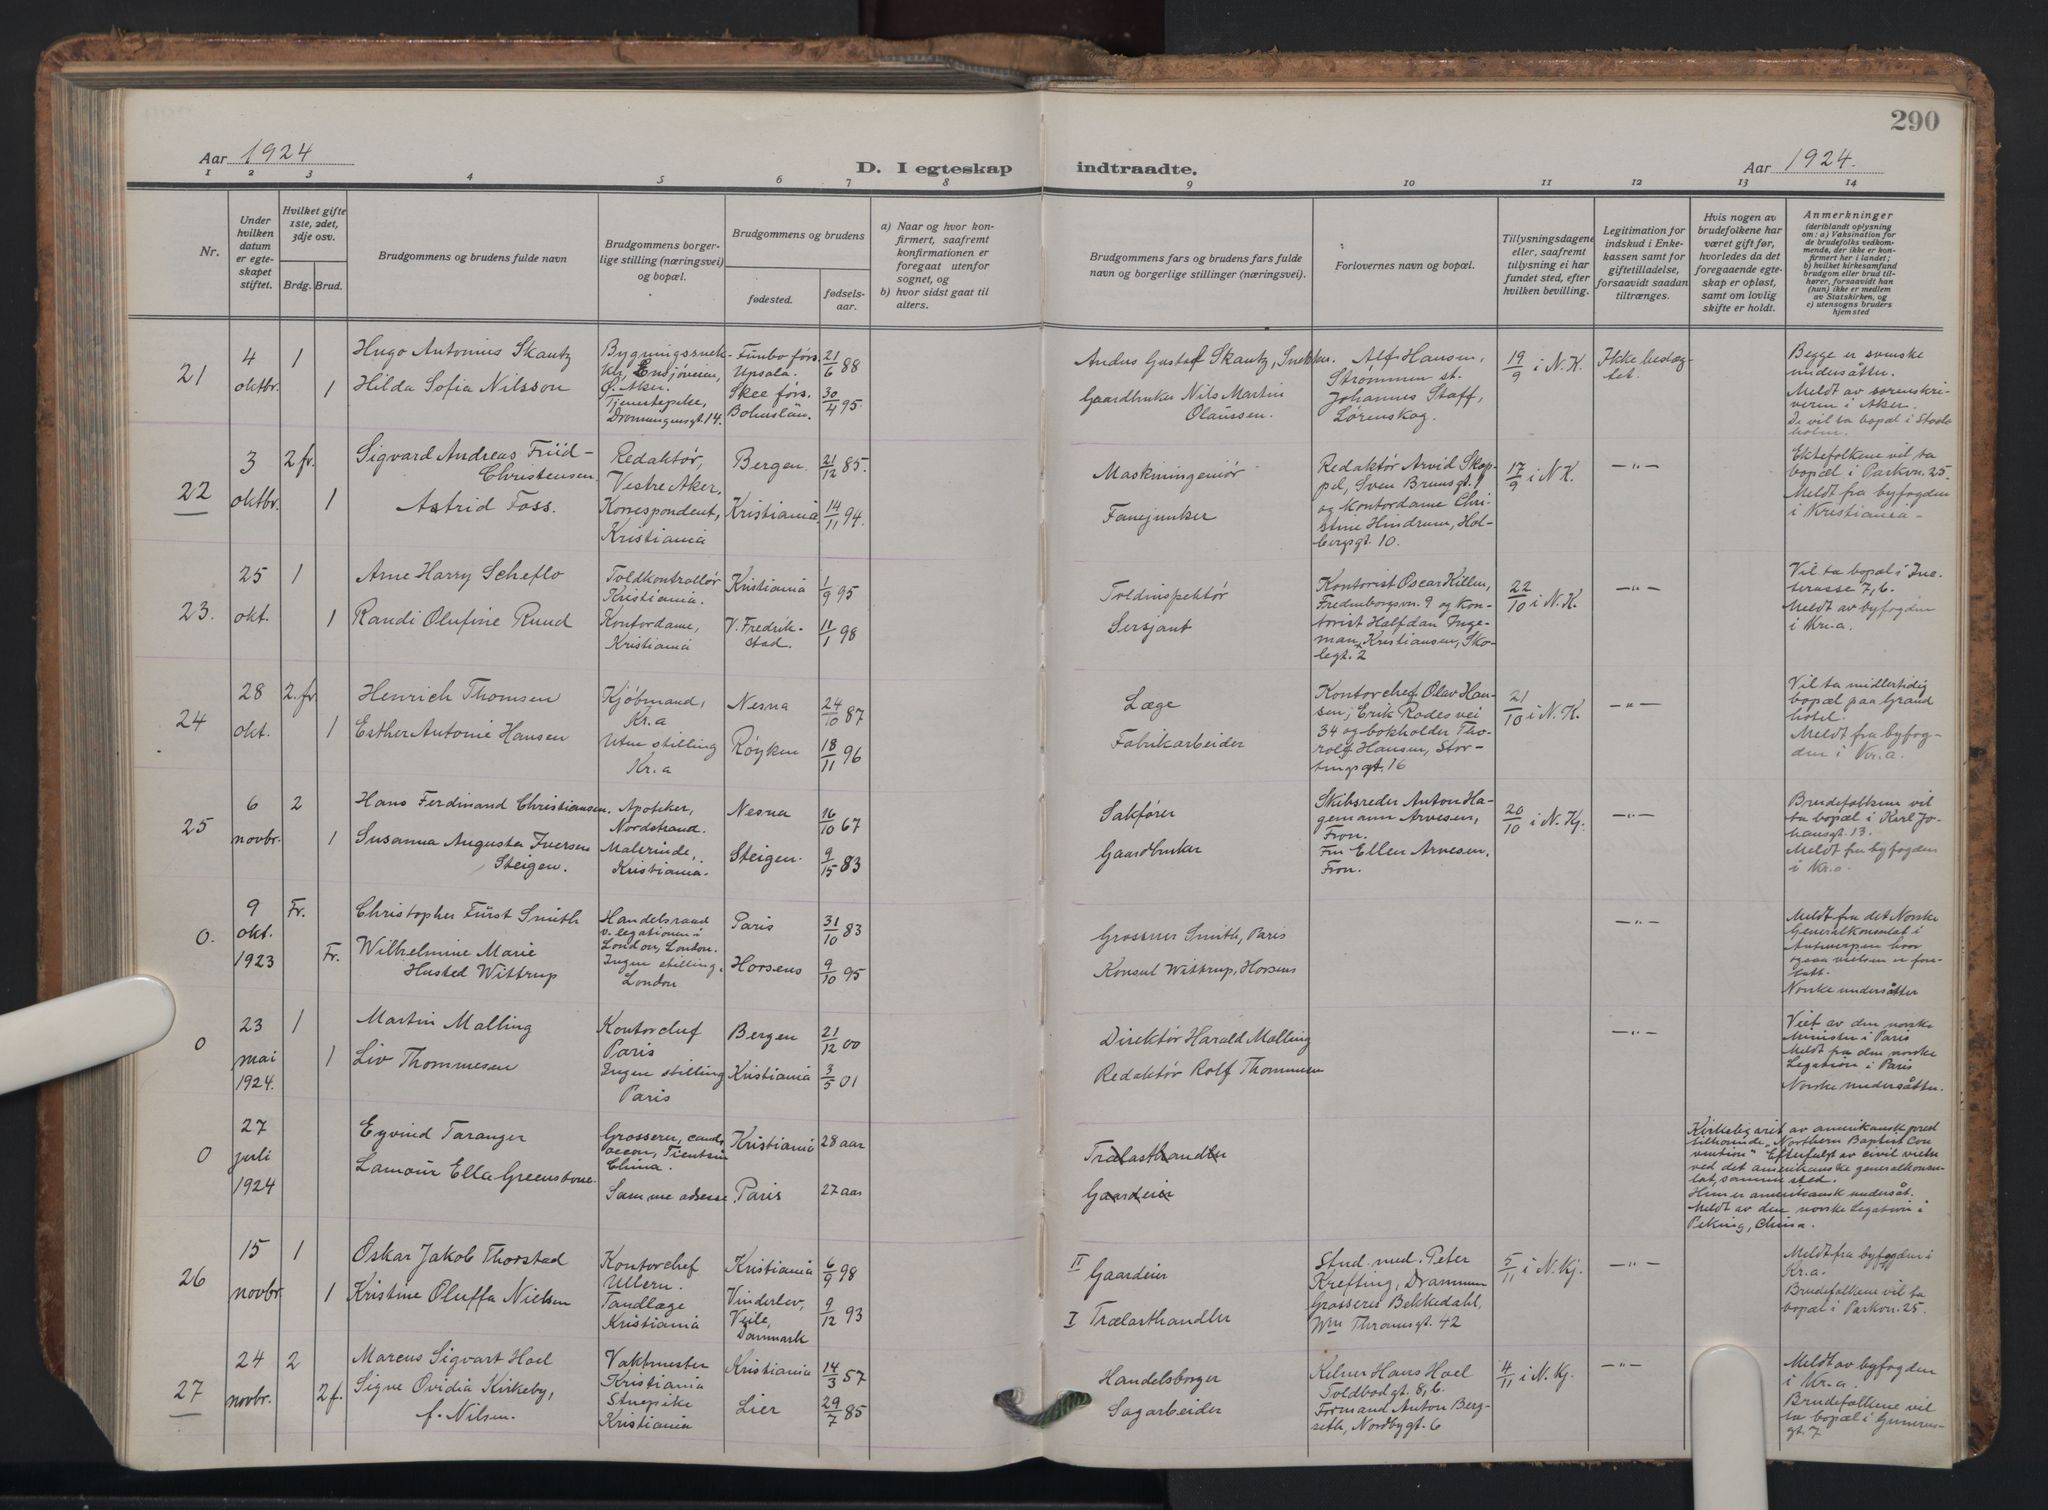 290
Aar 1924
D. I egteskap indtraadte.
Aar 1924.
1 2 3 4 5 6 7 8 9 10 11 12 13 14
Nr.
Under hvilken datum er egteskapet stiftet.
Hvilket gifte 1ste, 2det, 3dje osv.
Brdg. Brud.
Brudgommens og brudens fulde navn
Brudgommens borgerlige stilling (næringsvei) og bopæl.
Brudgommens og brudens
fødested.
fødselsaar.
a) Naar og hvor konfirmert, saafremt konfirmationen er foregaat utenfor sognet, og
b) hvor sidst gaat til alters.
Brudgommens fars og brudens fars fulde navn og borgerlige stillinger (næringsvei).
Forlovernes navn og bopæl.
Tillysningsdagene eller, saafremt tillysning ei har fundet sted, efter hvilken bevilling.
Legitimation for indskud i Enkekassen samt for giftetilladelse, forsaavidt saadan tiltrænges.
Hvis nogen av brudefolkene har været gift før, hvorledes da det foregaaende egteskap er opløst, samt om lovlig skifte er holdt.
Anmerkninger
(deriblandt oplysning om: a) Vaksination for de brudefolks vedkommende, der ikke er konfirmert her i landet;
b) hvilket kirkesamfund brudgom eller brud tilhører, forsaavidt han (hun) ikke er medlem av Statskirken, og
c) utensogns bruders hjemsted
21
4 oktbr.
1
1
Hugo Antonius Skautz
Hilda Sofia Nilsson
Ensjøveien,
Ø. Aker.
Tjenestepike,
Dronningensgt. 14.
Funbo førs. Upsala.
Skee førs. Bohuslän.
21/6 88
30/4 95.
Anders Gustaf Skautz, Snekker.
Gaardbruker Nils Martin
Olaussen.
Alf Hansen,
Strømmen st.
Johannes Staff,
Lørenskog.
19/9 i N.K.
Ikke beslægtet.
Begge er svenske
undersåtter.
Meldt av sorenskriveren i Aker.
De vil ta bopæl i
22
3 oktbr.
2 fr.
1
Sigvard Andreas Friid-
Christensen
Astrid Foss.
Redaktør,
Vestre Aker,
Korrespondent,
Kristiania
Bergen
Kristiania.
21/12 85.
14/11 94.
Maskiningeniør
Fanejunker
Redaktør Arvid Skappel, Sven Brunsgt. 1
og Kontordame Christine Hindrum, Holbergsgt. 10.
17/9 i N.K.
—"—
Ektefolkene vil ta
bopæl i Parkvn. 25.
Meldt fra byfogden
i Kristiania
23.
25 okt.
1
1
Arne Harry Scheflo
Randi Olufine Ruud
Toldkontrollør
Kristiania.
Kontordame,
Kristiania
Kristiania
V. Fredrikstad.
1/9 95
11/1 98
Toldinspektør
Sersjant
Kontorist Oscar Killen,
Fredensborgsvn. 9 og Kontorist Halfdan Ingeman Kristiansen, Skolegt. 2
22/10 i N.K.
—"—
Vil ta bopæl i
terasse 7, 6.
Meldt av byfogden
i Kr.a.
24
28 okt.
2. fr
1
Henrich Thomsen
Esther Antonie Hansen
Kjøbmand,
Kr.a
Uten stilling
Kr.a
Nesna
Røyken
24/10 87
18/11 96
Læge
Fabrikarbeider
Kontorchef Olav Hansen, Erik Rodes vei
34 og bokholder Thorolf Hansen, Stortingsgt. 16
21/10 i N.K.
—"—
Vil ta midlertidig
bopæl paa Grand
hotel.
Meldt fra byfogden i Kr.a.
25
6 novbr.
2
1
Hans Ferdinand Christiansen.
Susanna Augusta Iversen
Steigen.
Apoteker,
Nordstrand.
Malerinde,
Kristiania.
Nesna
Steigen.
16/10 67
9/15 83
Sakfører
Gaardbruker
Skibsreder Anton Hagemann Arvesen,
Fron.
Fru Ellen Arvesen,
Fron.
20/10 i N.Kj.
—"—
Brudefolkene vil
ta bopæl i Karl Johansgt. 13.
Meldt fra byfogden
i Kr.a.
0.
9 okt. 1923
Fr.
Fr.
Christopher Fürst Smith
Wilhelmine Marie
Husted Wittrup
Handelsraad
v. legationen i
London, London.
Ingen stilling.
London
Paris
Horsens
31/10 83
9/10 95
Grosserer Smith, Paris
Konsul Wittrup, Horsens
—"—
Meldt fra det Norske
Generalkonsulat i
Antwerpen hvor
ogsaa vielsen er foretatt.
Norske undersåtter
0
23 mai 1924.
1
1
Martin Malling
Liv Thommesen
Kontorchef
Paris
Ingen stilling
Paris
Bergen
Kristiania
21/12 00
3/5 01
Direktør Harald Malling
Redaktør Rolf Thommesen
—"—
Viet av den norske
Minister i Paris
Meldt fra den norske
Legation i Paris
Norske undersåtter.
0
27 juli 1924
Eyvind Taranger
Lamour Ella Greenstone.
Grosserer, cand.
oecon, Tientsin
China.
Samme adresse.
Kristiania
Paris
28 aar
27 aar
Trælasthandler
Gaardeier
Kirkelig viet av amerikansk
"Northern Baptist Convention" Efterfulgt av civil vielse
ved det amerikanske generalkonsulat, samme sted.
Hun er amerikansk undersåt.
Meldt av den norske Legation i
Peking, China.
26
15 novbr.
1
1
Oskar Jakob Thorstad
Kristine Oluffa Nielsen
Kontorchef
Ullern.
Tandlæge
Kristiania
Kristiania
Vinderlev,
Veile,
Danmark
6/9 98
9/12 93
II Gaardeier
I Trælasthandler
Stud. med. Peter
Krefting, Drammen
Grosserer Bekkedahl,
Wm Thranesgt. 42
5/11 i N.Kj.
—"—
Meldt fra byfogden i
Kr.a.
Brudefolkene vil ta
bopæl i Parkvn. 25.
27
24 novbr.
2
2 f.
Marcus Sigvart Hoel
Signe Ovidia Kirkeby,
f. Nilsen.
Vaktmester
Kristiania
Kristiania
Kristiania
Lier
14/3 57
29/7 85
Handelsborger
Sagarbeider
Kelner Hans Hoel
Toldbodgt. 8, 6.
Formand Anton Bergseth, Nordbygt. 6
4/11 i N.Kj.
—"—
Meldt av byfogden
i Kr.a.
Brudefolkene vil
ta bopæl i
gt. 7